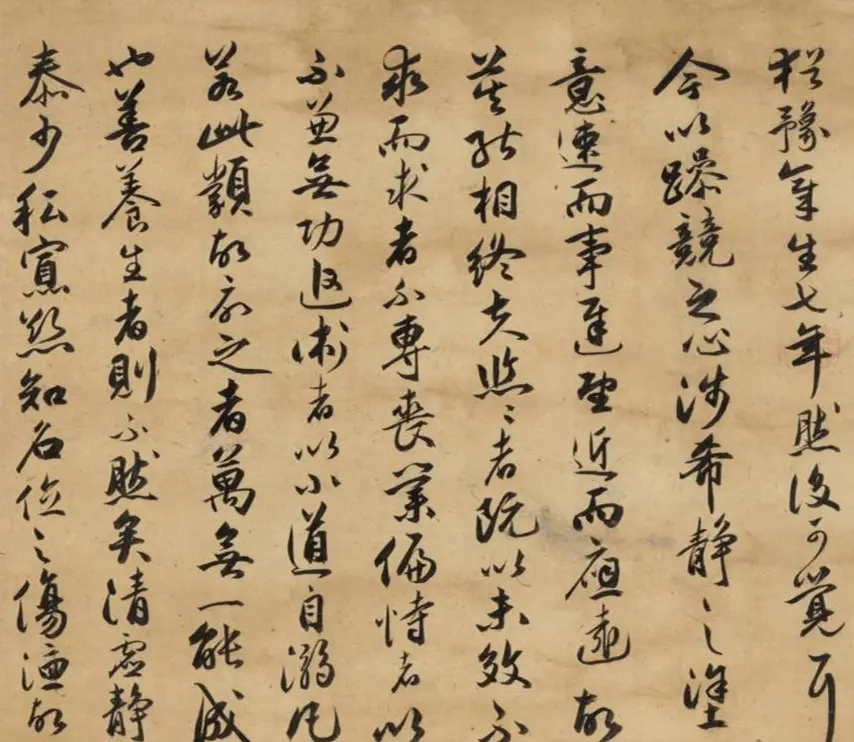 猶豫章生七年然後可覺耳
今以躁競之心涉希靜之塗
意速而事遲望近而應遠故
莫能相終夫悠悠者既以未效不
求而求者不專喪業偏恃者以
不兼無功追術者以小道自溺凡
若此類故欲之者萬無一能成
也善養生者則不然矣清虛靜
泰少私寡欲知名位之傷德故